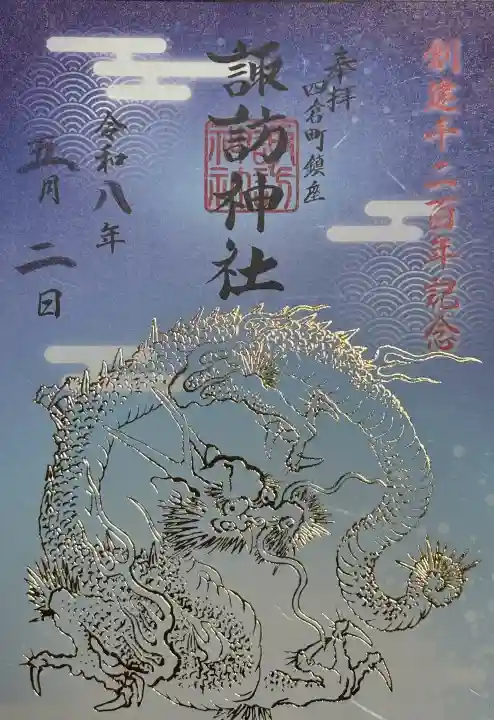 創建千二百年記念
奉拝
四倉町鎮座
諏訪神社
令和八年
五月二日